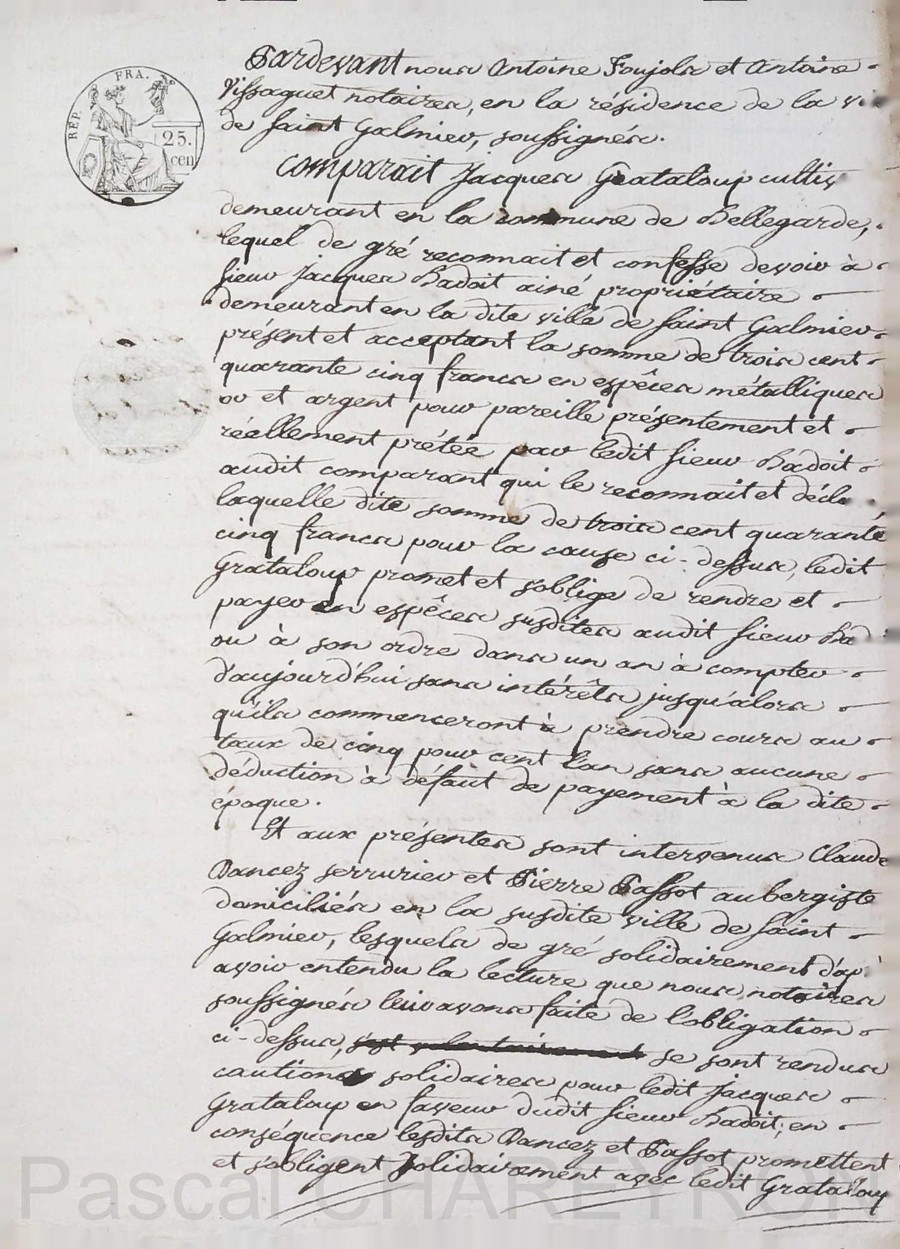 RÉP. FRA.
25.
cen
Pardevant nous Antoine Foujols et Antoine
Vissaguet notaires, en la résidence de la vi
de Saint Galmier, soussignés.
Comparait Jacques Grataloup cultiv
demeurant en la commune de Bellegarde,
lequel de gré reconnait et confesse devoir à
sieur Jacques Badoit ainé propriétaire
demeurant en la dite ville de Saint Galmier
présent et acceptant la somme de trois cent
quarante cinq francs en espêces métalliques
or et argent pour pareille présentement et
réellement prêtée par ledit sieur Badoit
audit comparant qui le reconnait et décla
laquelle dite somme de trois cent quarante
cinq francs pour la cause ci-dessus, ledit
Grataloup promet et s'oblige de rendre et
payer en espêces susdites audit sieur Bad
ou à son ordre dans un an à compter
d'aujourd'hui sans intérêts jusqu'alors
qu'ils commenceront à prendre cours au
taux de cinq pour cent l'an sans aucune
déduction à défaut de payement à la dite
époque.
Et aux présentes sont intervenus Claude
Vancez serrurier et Pierre Passot aubergiste
domiciliés en la susdite ville de Saint
Galmier, lesquels de gré solidairement d'ap
avoir entendu la lecture que nous notaires
soussignés leur avons faite de l'obligation
ci-dessus, se sont rendus
cautions solidaires pour ledit Jacques
Grataloup en faveur dudit sieur Badoit; en
conséquence lesdits Vancez et Passot promettent
et s'obligent solidairement avec ledit Grataloup
Pascal CHAREYRON